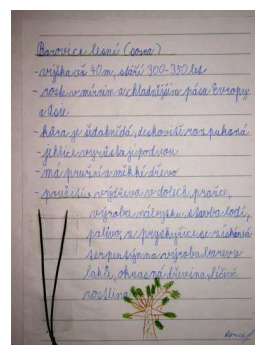 Borovice lesní (sosna)
- výška až 40m, stáří 300-350 let
- roste v mírném a chladnějším pásu Evropy
a Asie
- kůra je šedohnědá, deskovitě rozpukaná
- jehlice vyrůstají po dvou
- má pružné a měkké dřevo
- použití: výdřeva v dolech, pražce,
výroba nábytku, stavba lodí,
palivo, z pryskyřice se získává
terpentýn na výrobu barev a
laků, okrasná dřevina, léčivá
rostlina